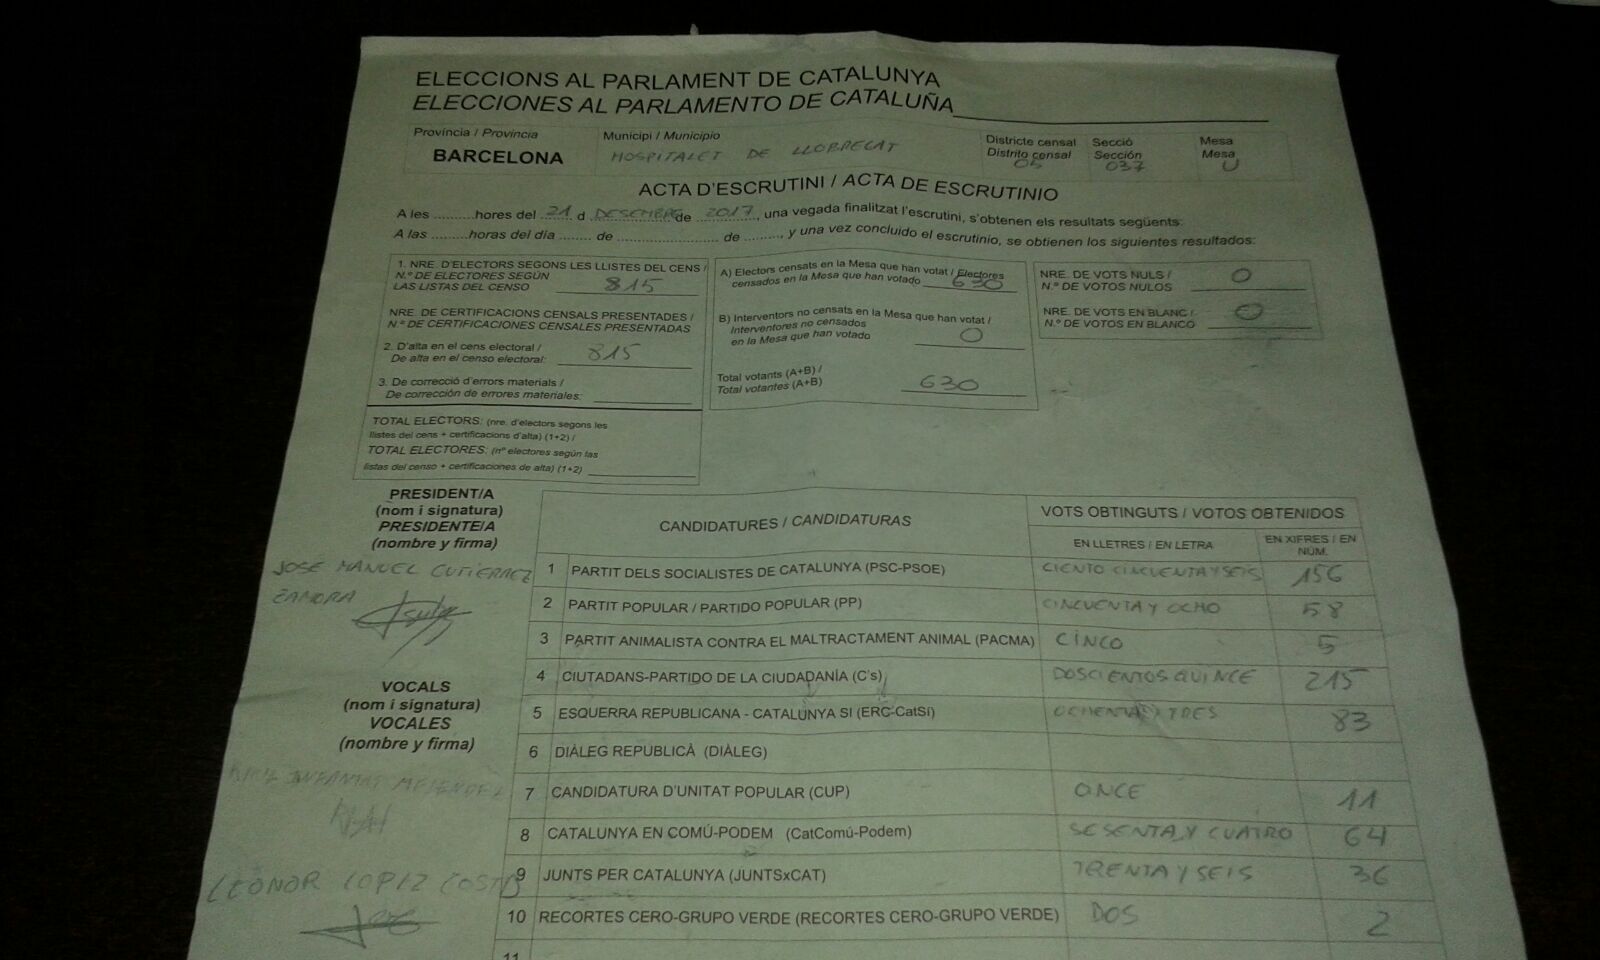 ELECCIONS AL PARLAMENT DE CATALUNYA
ELECCIONES AL PARLAMENTO DE CATALUÑA
Província / Provincia
BARCELONA
Municipi / Municipio
HOSPITALET DE LLOBREGAT
Districte censal
Distrito censal
05
Secció
Sección
037
Mesa
Mesa
U
ACTA D'ESCRUTINI / ACTA DE ESCRUTINIO
A les .........hores del 21 d DESEMBRE de 2017, una vegada finalitzat l'escrutini, s'obtenen els resultats següents:
A las .........horas del día ........ de ........................ de .........., y una vez concluido el escrutinio, se obtienen los siguientes resultados:
1. NRE. D'ELECTORS SEGONS LES LLISTES DEL CENS /
N.º DE ELECTORES SEGÚN
LAS LISTAS DEL CENSO 815
NRE. DE CERTIFICACIONS CENSALS PRESENTADES /
N.º DE CERTIFICACIONES CENSALES PRESENTADAS
2. D'alta en el cens electoral /
De alta en el censo electoral: 815
3. De correcció d'errors materials /
De corrección de errores materiales:
TOTAL ELECTORS: (nre. d'electors segons les
llistes del cens + certificacions d'alta) (1+2) /
TOTAL ELECTORES: (nº electores según las
listas del censo + certificaciones de alta) (1+2)
A) Electors censats en la Mesa que han votat / Electores
censados en la Mesa que han votado 630
B) Interventors no censats en la Mesa que han votat /
Interventores no censados
en la Mesa que han votado 0
Total votants (A+B) /
Total votantes (A+B) 630
NRE. DE VOTS NULS /
N.º DE VOTOS NULOS 0
NRE. DE VOTS EN BLANC /
N.º DE VOTOS EN BLANCO 0
PRESIDENT/A
(nom i signatura)
PRESIDENTE/A
(nombre y firma)
JOSE MANUEL GUTIERREZ
ZAMORA
VOCALS
(nom i signatura)
VOCALES
(nombre y firma)
LEONOR LOPEZ COSTA
CANDIDATURES / CANDIDATURAS
VOTS OBTINGUTS / VOTOS OBTENIDOS
EN LLETRES / EN LETRA
EN XIFRES / EN
NÚM.
1 PARTIT DELS SOCIALISTES DE CATALUNYA (PSC-PSOE) CIENTO CINCUENTA Y SEIS 156
2 PARTIT POPULAR / PARTIDO POPULAR (PP) CINCUENTA Y OCHO 58
3 PARTIT ANIMALISTA CONTRA EL MALTRACTAMENT ANIMAL (PACMA) CINCO 5
4 CIUTADANS-PARTIDO DE LA CIUDADANÍA (C's) DOSCIENTOS QUINCE 215
5 ESQUERRA REPUBLICANA - CATALUNYA SI (ERC-CatSí) OCHENTA Y TRES 83
6 DIÀLEG REPUBLICÀ (DIÀLEG)
7 CANDIDATURA D'UNITAT POPULAR (CUP) ONCE 11
8 CATALUNYA EN COMÚ-PODEM (CatComú-Podem) SESENTA Y CUATRO 64
9 JUNTS PER CATALUNYA (JUNTSxCAT) TRENTA Y SEIS 36
10 RECORTES CERO-GRUPO VERDE (RECORTES CERO-GRUPO VERDE) DOS 2
11